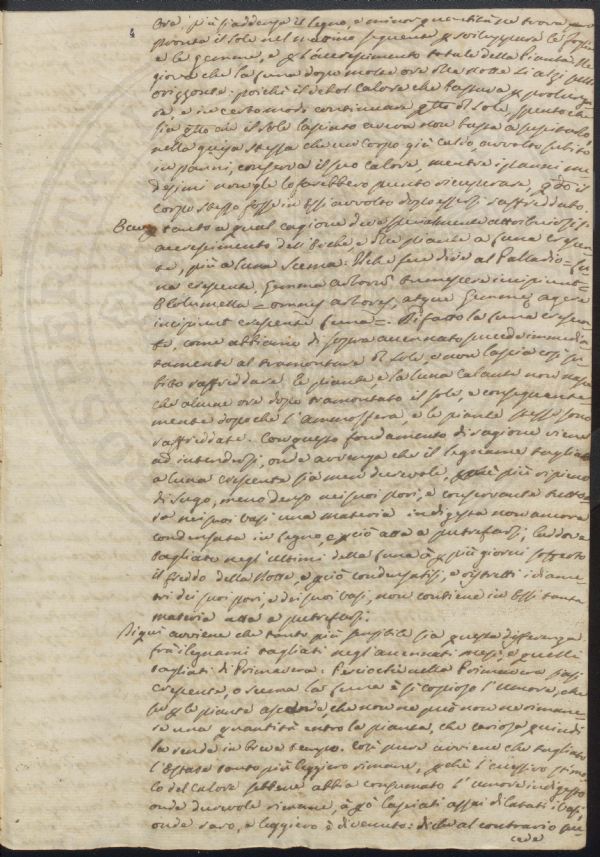 4
ora, più s'addensa il legno, e minor quantità ne trova
pronta il sole nel mattino seguente p sviluppare le foglie
e le gemme, e p l'accrescimento totale della Pianta.
giova che la luna dopo molte ore della notte s'alzi sull'
orizzonte: poichè il debol calore che basta a prolunga
re, e in certo modo continuare quello di sole, spento che
sia quello che il sole lasciato aveva non basta a suscitarlo,
nella guisa stessa che un corpo già caldo, avvolto subito
in panni, conserva il suo calore, mentre i panni me
desimi non gle lo farebbero punto ricuperare, quando il
corpo stesso fosse in essi avvolto dopo essersi raffreddato.
tanto a qual cagione deve specialmente attribuirsi l'
accrescimento dell'Erbe, e delle piante a luna crescen
te, più a luna scema: Il che fece dire al Palladio = Lu
na crescente, Gemma arborum turgescere incipiunt =
E Columella = omnes arbores, atque Gemmae agere
incipiunt crescente luna =. Di fatto la luna crescen
te, come abbiamo di sopra accennato succede immedia
tamente al tramontare del sole, e non lascia così su
bito raffreddare le piante, e la luna calante non nasce
che alcune ore dopo tramontato il sole, e conseguente
mente dopo che l'Ammosfera, e le piante stesse sono
raffreddate. Con questo fondamento di ragione viene
ad intendersi, onde avvenga che il legname tagliato
a luna crescente sia men durevole, più ripieno
di sugo, meno denso nei suoi pori, e conservante tutta
via nei suoi vasi una materia indigesta non ancora
condensata in legno, e perciò atta a putrefarsi; laddove
tagliato negl'ultimi della luna à p più giorni sofferto
il freddo della Notte, e perciò condensatisi, e ristretti i diame
tri dei suoi pori, e dei suoi vasi, non contiene in essi tanta
materia atta a putrefarsi.
Di qui avviene che tanto più sensibile sia questa differenza
fra i legnami tagliati negli accennati mesi, e quelli
tagliati di Primavera. Perciochè nella Primavera sia
crescente, o scema la luna è sì copioso l'umore, che
p le piante ascende, che non ne può non rimane
re una quantità entro la pianta, che cariosa quindi
la renda in breve tempo. Così pure avviene che tagliato
l'Estate tanto più leggiero rimane, perchè l'eccessivo stimo
lo del calore sebbene abbia consumato l'umore indigesto
onde durevole rimane, à però lasciati assai dilatati i vasi,
onde raro, e leggiero è divenuto: di che al contrario suc
cede